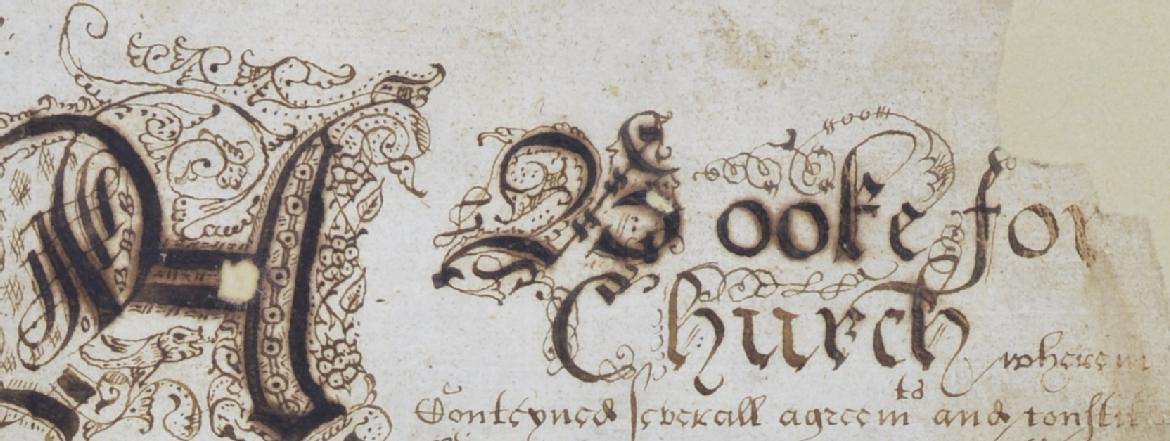 A Booke for
Church wherein
Conteyned severall agreemts and constit